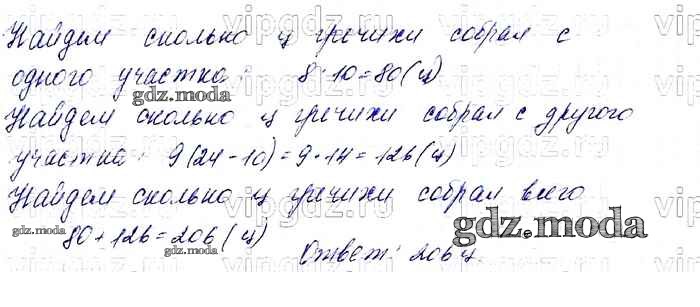 Найдем сколько ц гречихи собрал с
одного участка: 8·10=80(ц)
gdz.moda
Найдем сколько ц гречихи собрал с другого
участка: 9(24-10)=9·14=126(ц)
Найдем сколько ц гречихи собрал всего
gdz.moda 80+126=206(ц)
gdz.moda
Ответ: 206ц.